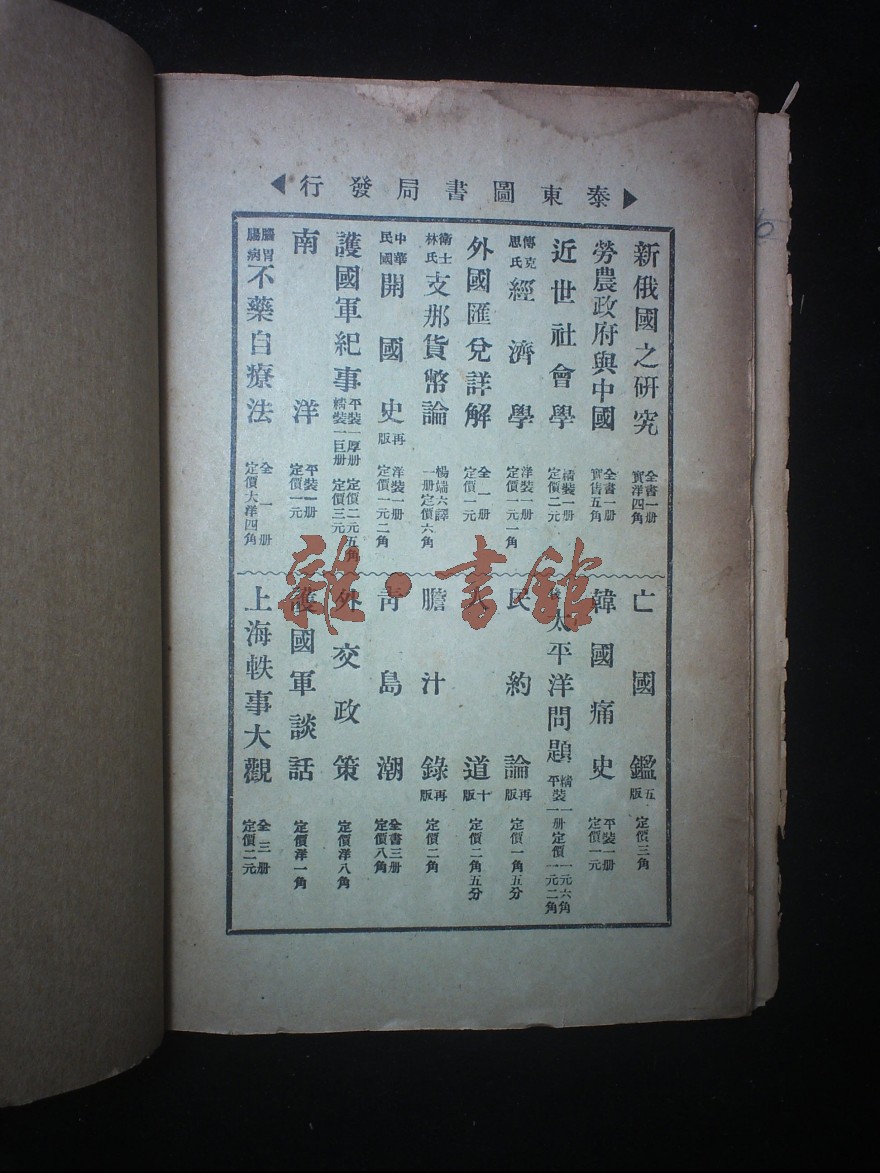 泰東圖書局發行
新俄國之研究 全書一册 實洋四角
勞農政府與中國 全書一册 實售五角
近世社會學 精裝一册 定價二元
傅克思氏 經濟學 洋裝一册 定價一元一角
外國匯兌詳解 全一册 定價一元
衛士林氏 支那貨幣論 楊端六譯 一册定價六角
中華民國 開國史 再版 洋裝一册 定價一元二角
護國軍紀事 平裝一厚册 定價二元五角 精裝一巨册 定價三元
南洋 平裝一册 定價一元
腸胃腸病 不藥自療法 全一册 定價大洋四角
亡國鑑 五版 定價三角
韓國痛史 平裝一册 定價一元
太平洋問題 精裝一册定價一元六角 平裝一册定價一元二角
民約論 再版 定價一角五分
人道 十版 定價二角五分
膽汁錄 再版 定價二角
青島潮 全書三册 定價八角
外交政策 定價洋八角
護國軍談話 定價洋一角
上海軼事大觀 全三册 定價二元
雜·書館